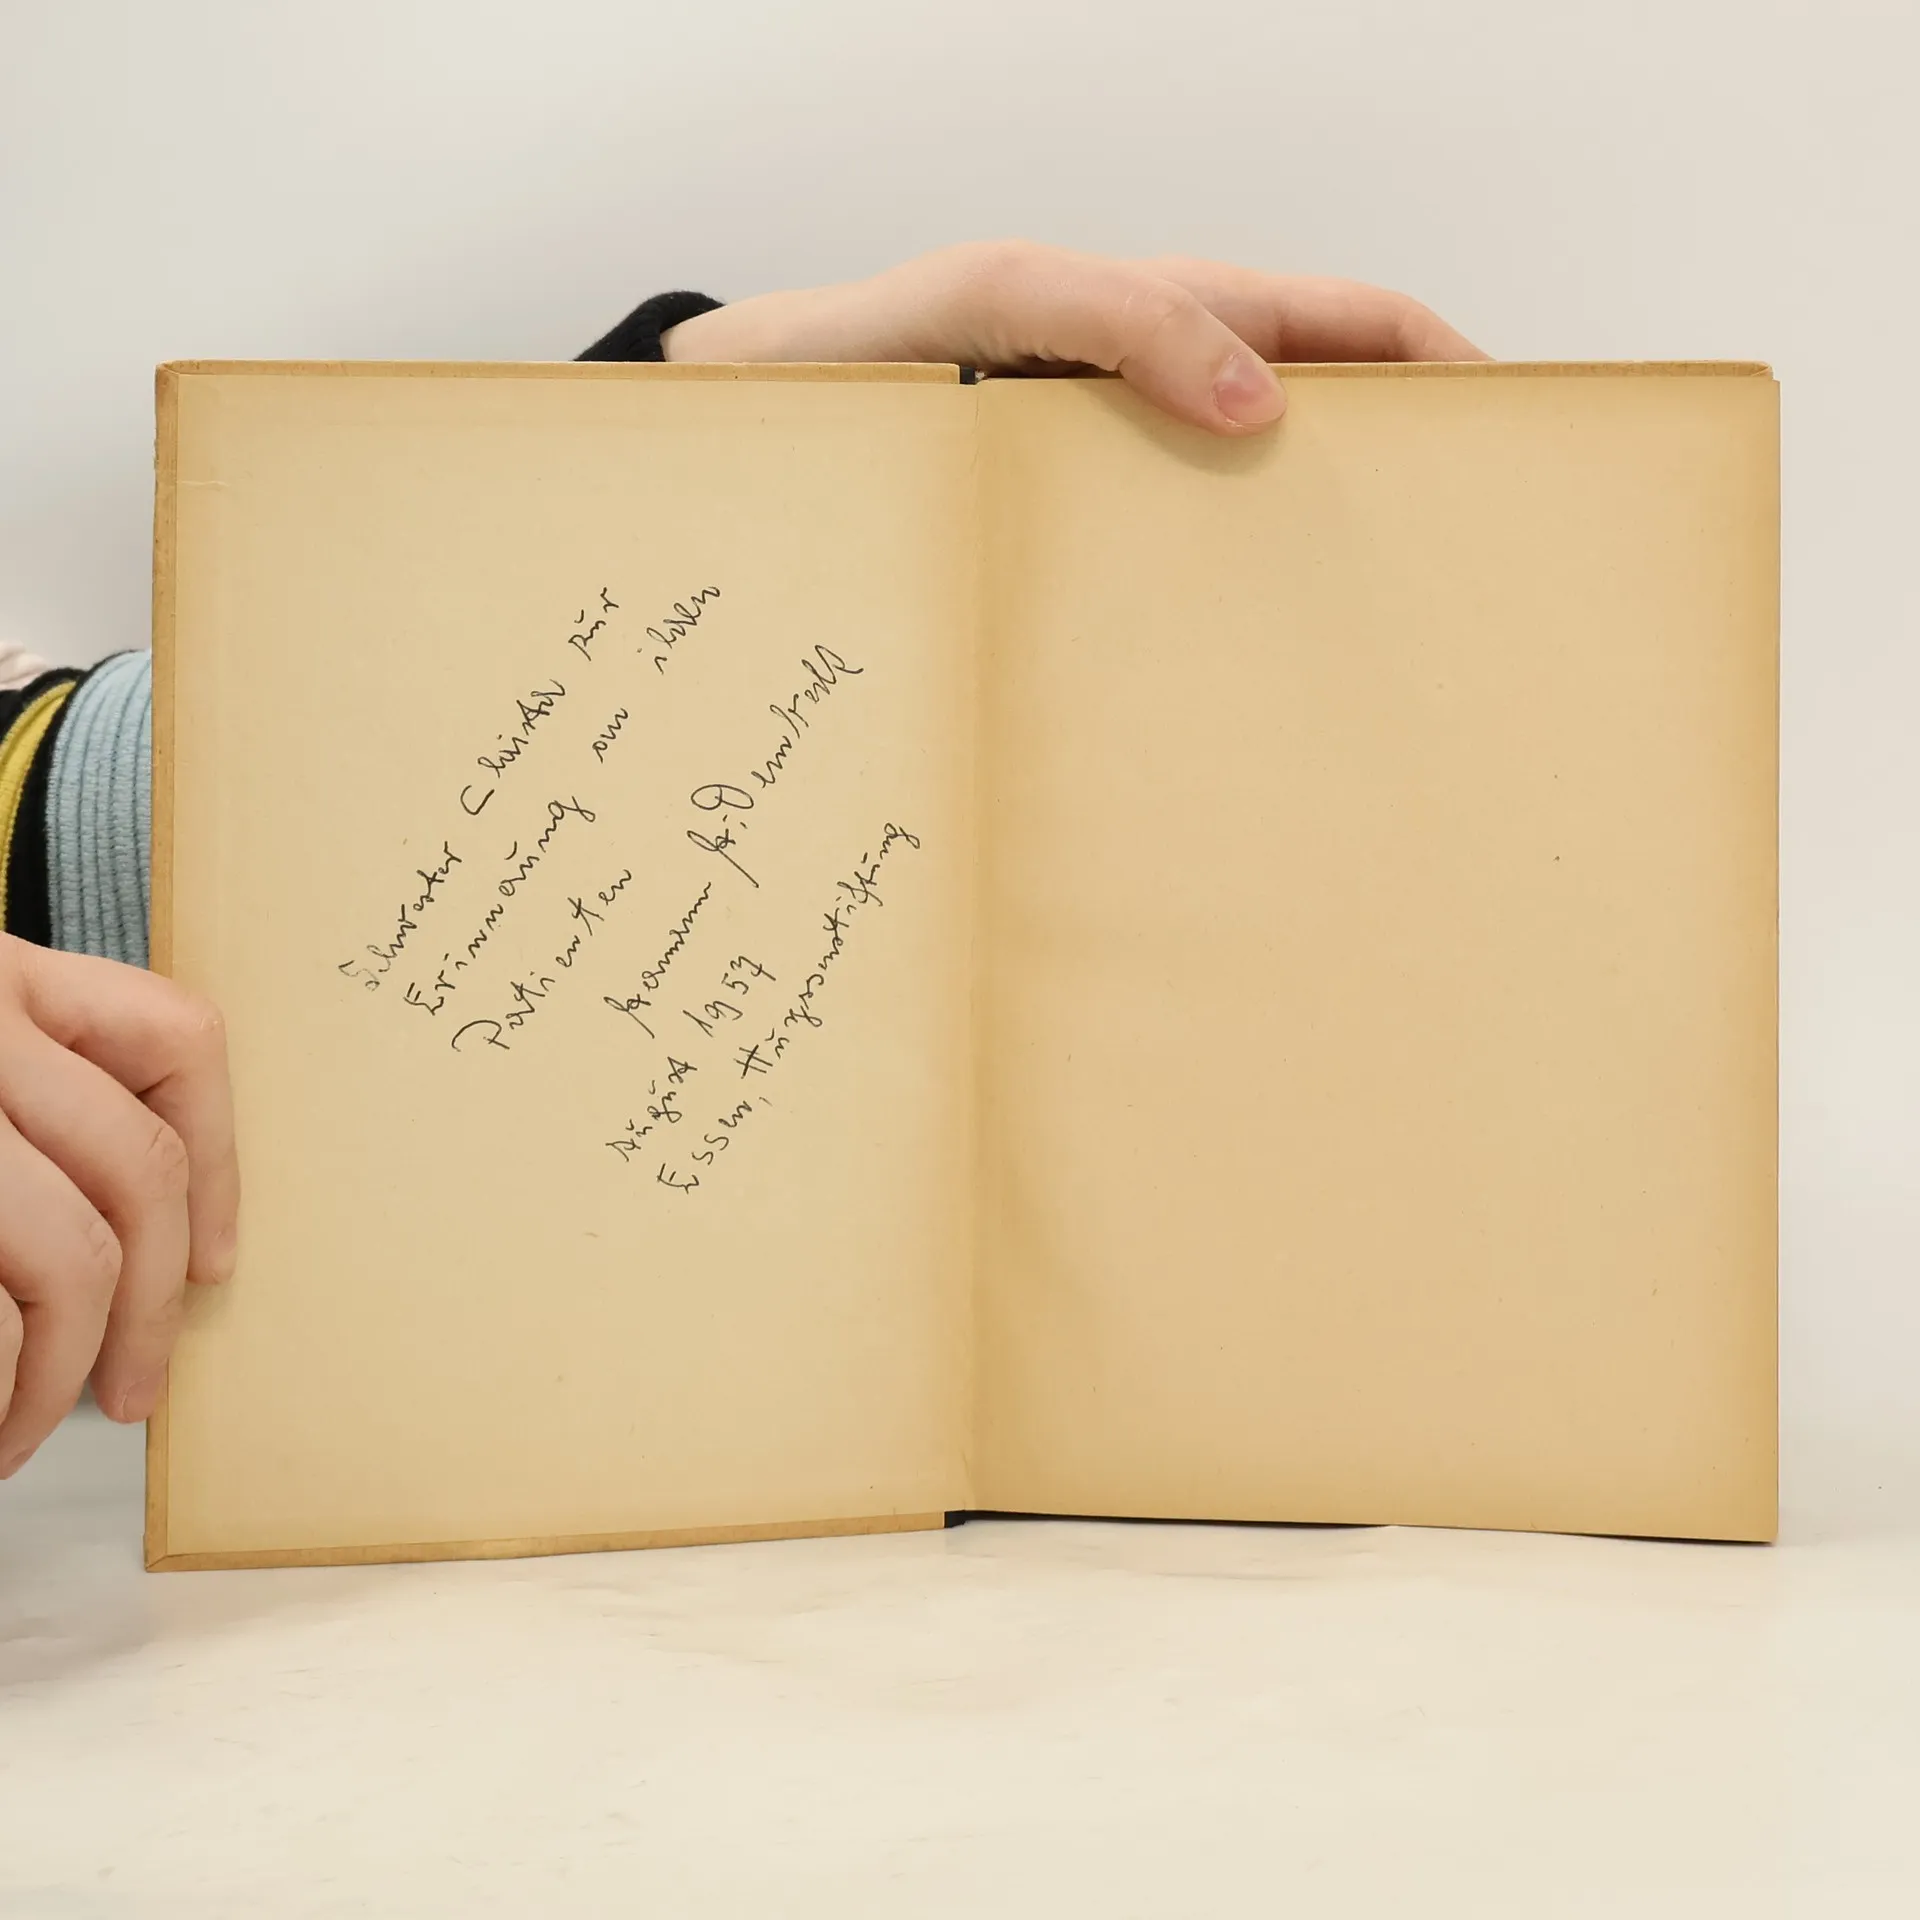 Schwester Christa zur
Erinnerung an ihren
Patienten
Hermann
August 1957
Essen, Huyssenstiftung